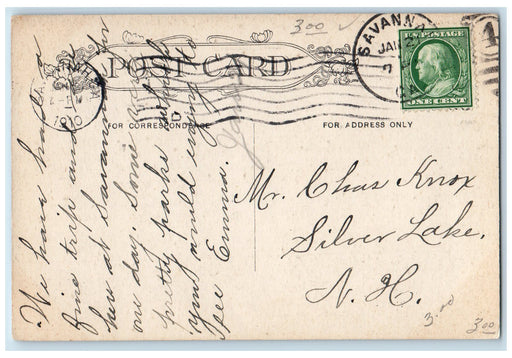 3.00
SAVANN
JAN 2
GA
1
U.S. POSTAGE
ONE CENT
POST CARD
1910
D
FOR CORRESPONDENCE
FOR ADDRESS ONLY
We have had a
fine trip and
here at Savannah for
one day. Some
pretty parks
you would enjoy to
see Emma.
Mr. Chas Knox
Silver Lake,
N. H.
3.00
3.00